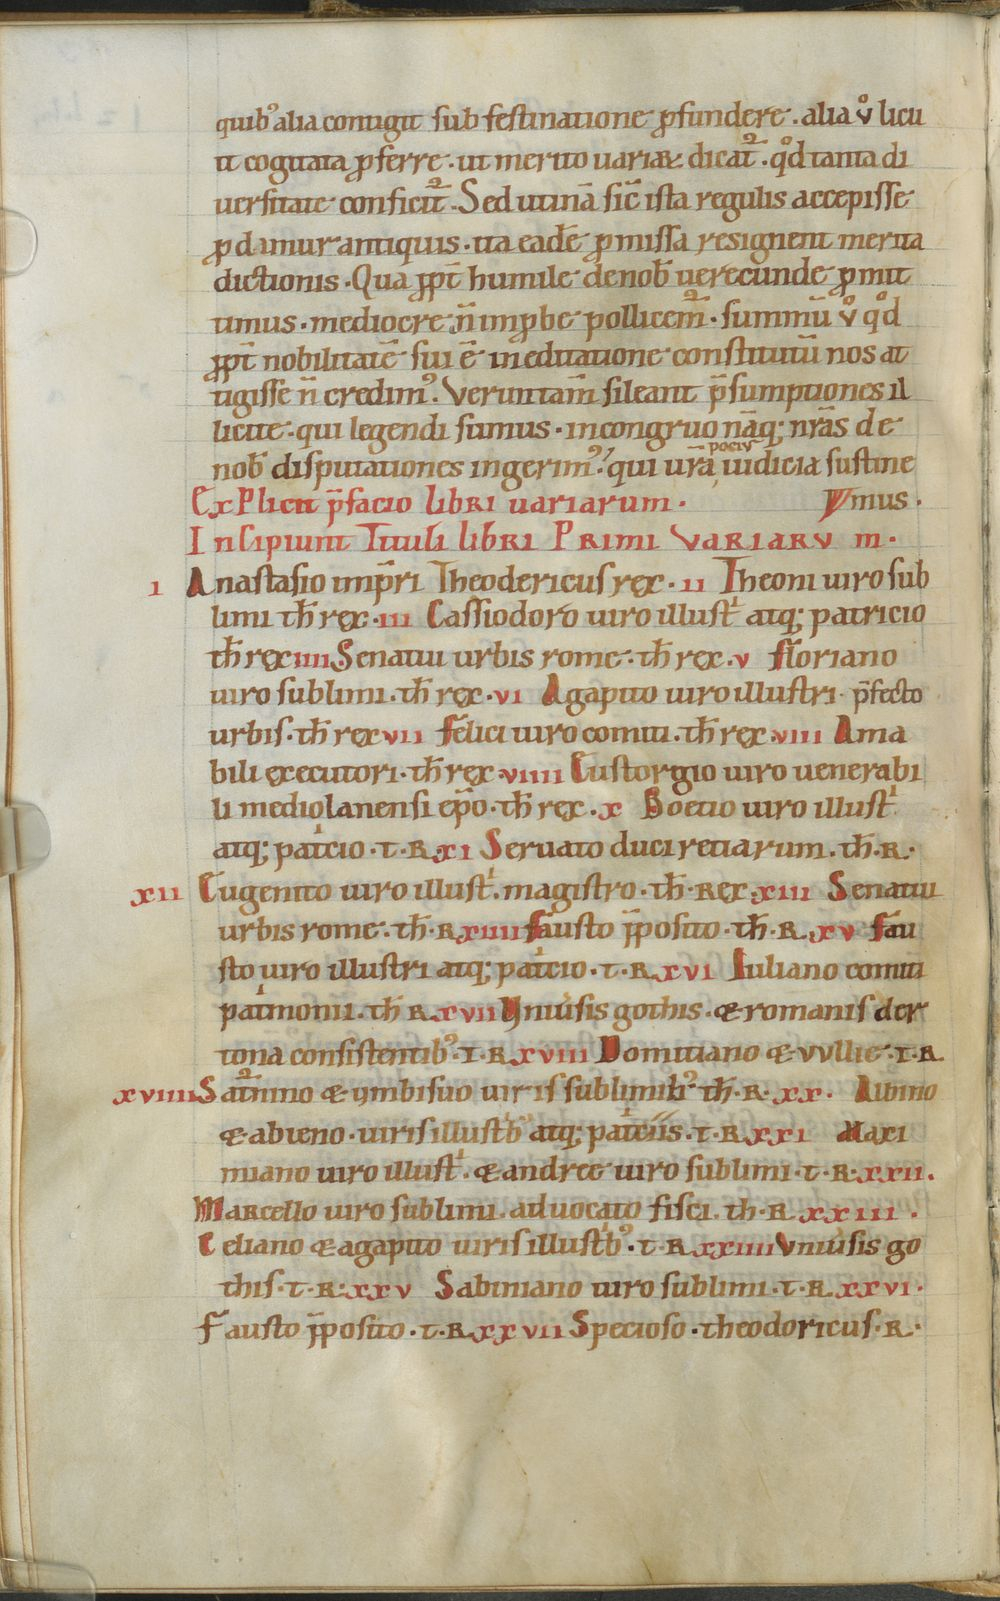 quibꝰ alia contigit sub festinatione ꝓfundere. alia v̊ licu
it cogitata ꝓferre. ut merito uariaꝝ dicat᷑. qd̊ tanta di
uersitate conficit᷑. Sed utinā sic̄ ista regulis accepisse
ꝓdimur antiquis. ita eadē ꝓmissa resignent merita
dictionis. Qua ꝓpt̄ humile de nob̄ uerecunde ꝓmit
timus. mediocre n̄ imꝓbe pollicem᷑. summū v̊ qd̊
ꝓpt̄ nobilitatē sui ē in editatione constitutū nos at
tigisse n̄ credimꝰ. Veruntam̄ sileant p̄sumptiones il
licite. qui legendi sumus. incongruo nāq; nr̄as de
nob̄ disputationes ingerimꝰ. qui ur̄a pociꝰ iudicia sustine
ExPlicit p̄facio libri uariarum. Vmus.
InCipiunt Tituli libri Primi Variarum.
I Anastasio imp̄ri Theodericus rex. II Theoni uiro sub
limi th̄ rex. III Cassiodoro uiro illust̄ atq; patricio
th̄ rex IIII Senatui urbis rome. th̄ rex. V Floriano
uiro sublimi. th̄ rex. VI Agapito uiro illustri. p̄fecto
urbis. th̄ rex VII Felici uiro comiti. th̄ rex. VIII Ama
bili executori. th̄ rex. VIIII Eustorgio uiro uenerabi
li mediolanensi ep̄o. th̄ rex. X Boetio uiro illust̄
atq; patcio. t. R. XI Seruato duci retiarum. th̄. R.
XII Eugenito uiro illust̄. magistro. th̄. Rex. XIII Senatui
urbis rome. th̄. R XIIII Fausto p̄posito. th̄. R. XV Fau
sto uiro illustri atq; patcio. t. R XVI Iuliano comiti
patmonii. th̄ R. XVII Vniuˢsis gothis. & romanis der
tona consistentibꝰ. t. R XVIII Domitiano & vvllie. t. R
XVIIII Sat᷑nino & ymbisuo uiris sublimibꝰ th̄. R. XX. Albino
& abieno. uiris illustb̄ atq; patciis. t. R XXI Maxi
miano uiro illust̄. & andree uiro sublimi. t. R. XXII.
Marcello uiro sublimi. aduocato fisci. th̄. R XXIII.
Celiano & agapito uiris illustbꝰ. t. R XXIIII Vniuˢsis go
this. t. R. XXV Sabiniano uiro sublimi. t. R XXVI.
Fausto p̄posito. t. R XXVII Specioso. theodoricus. R.